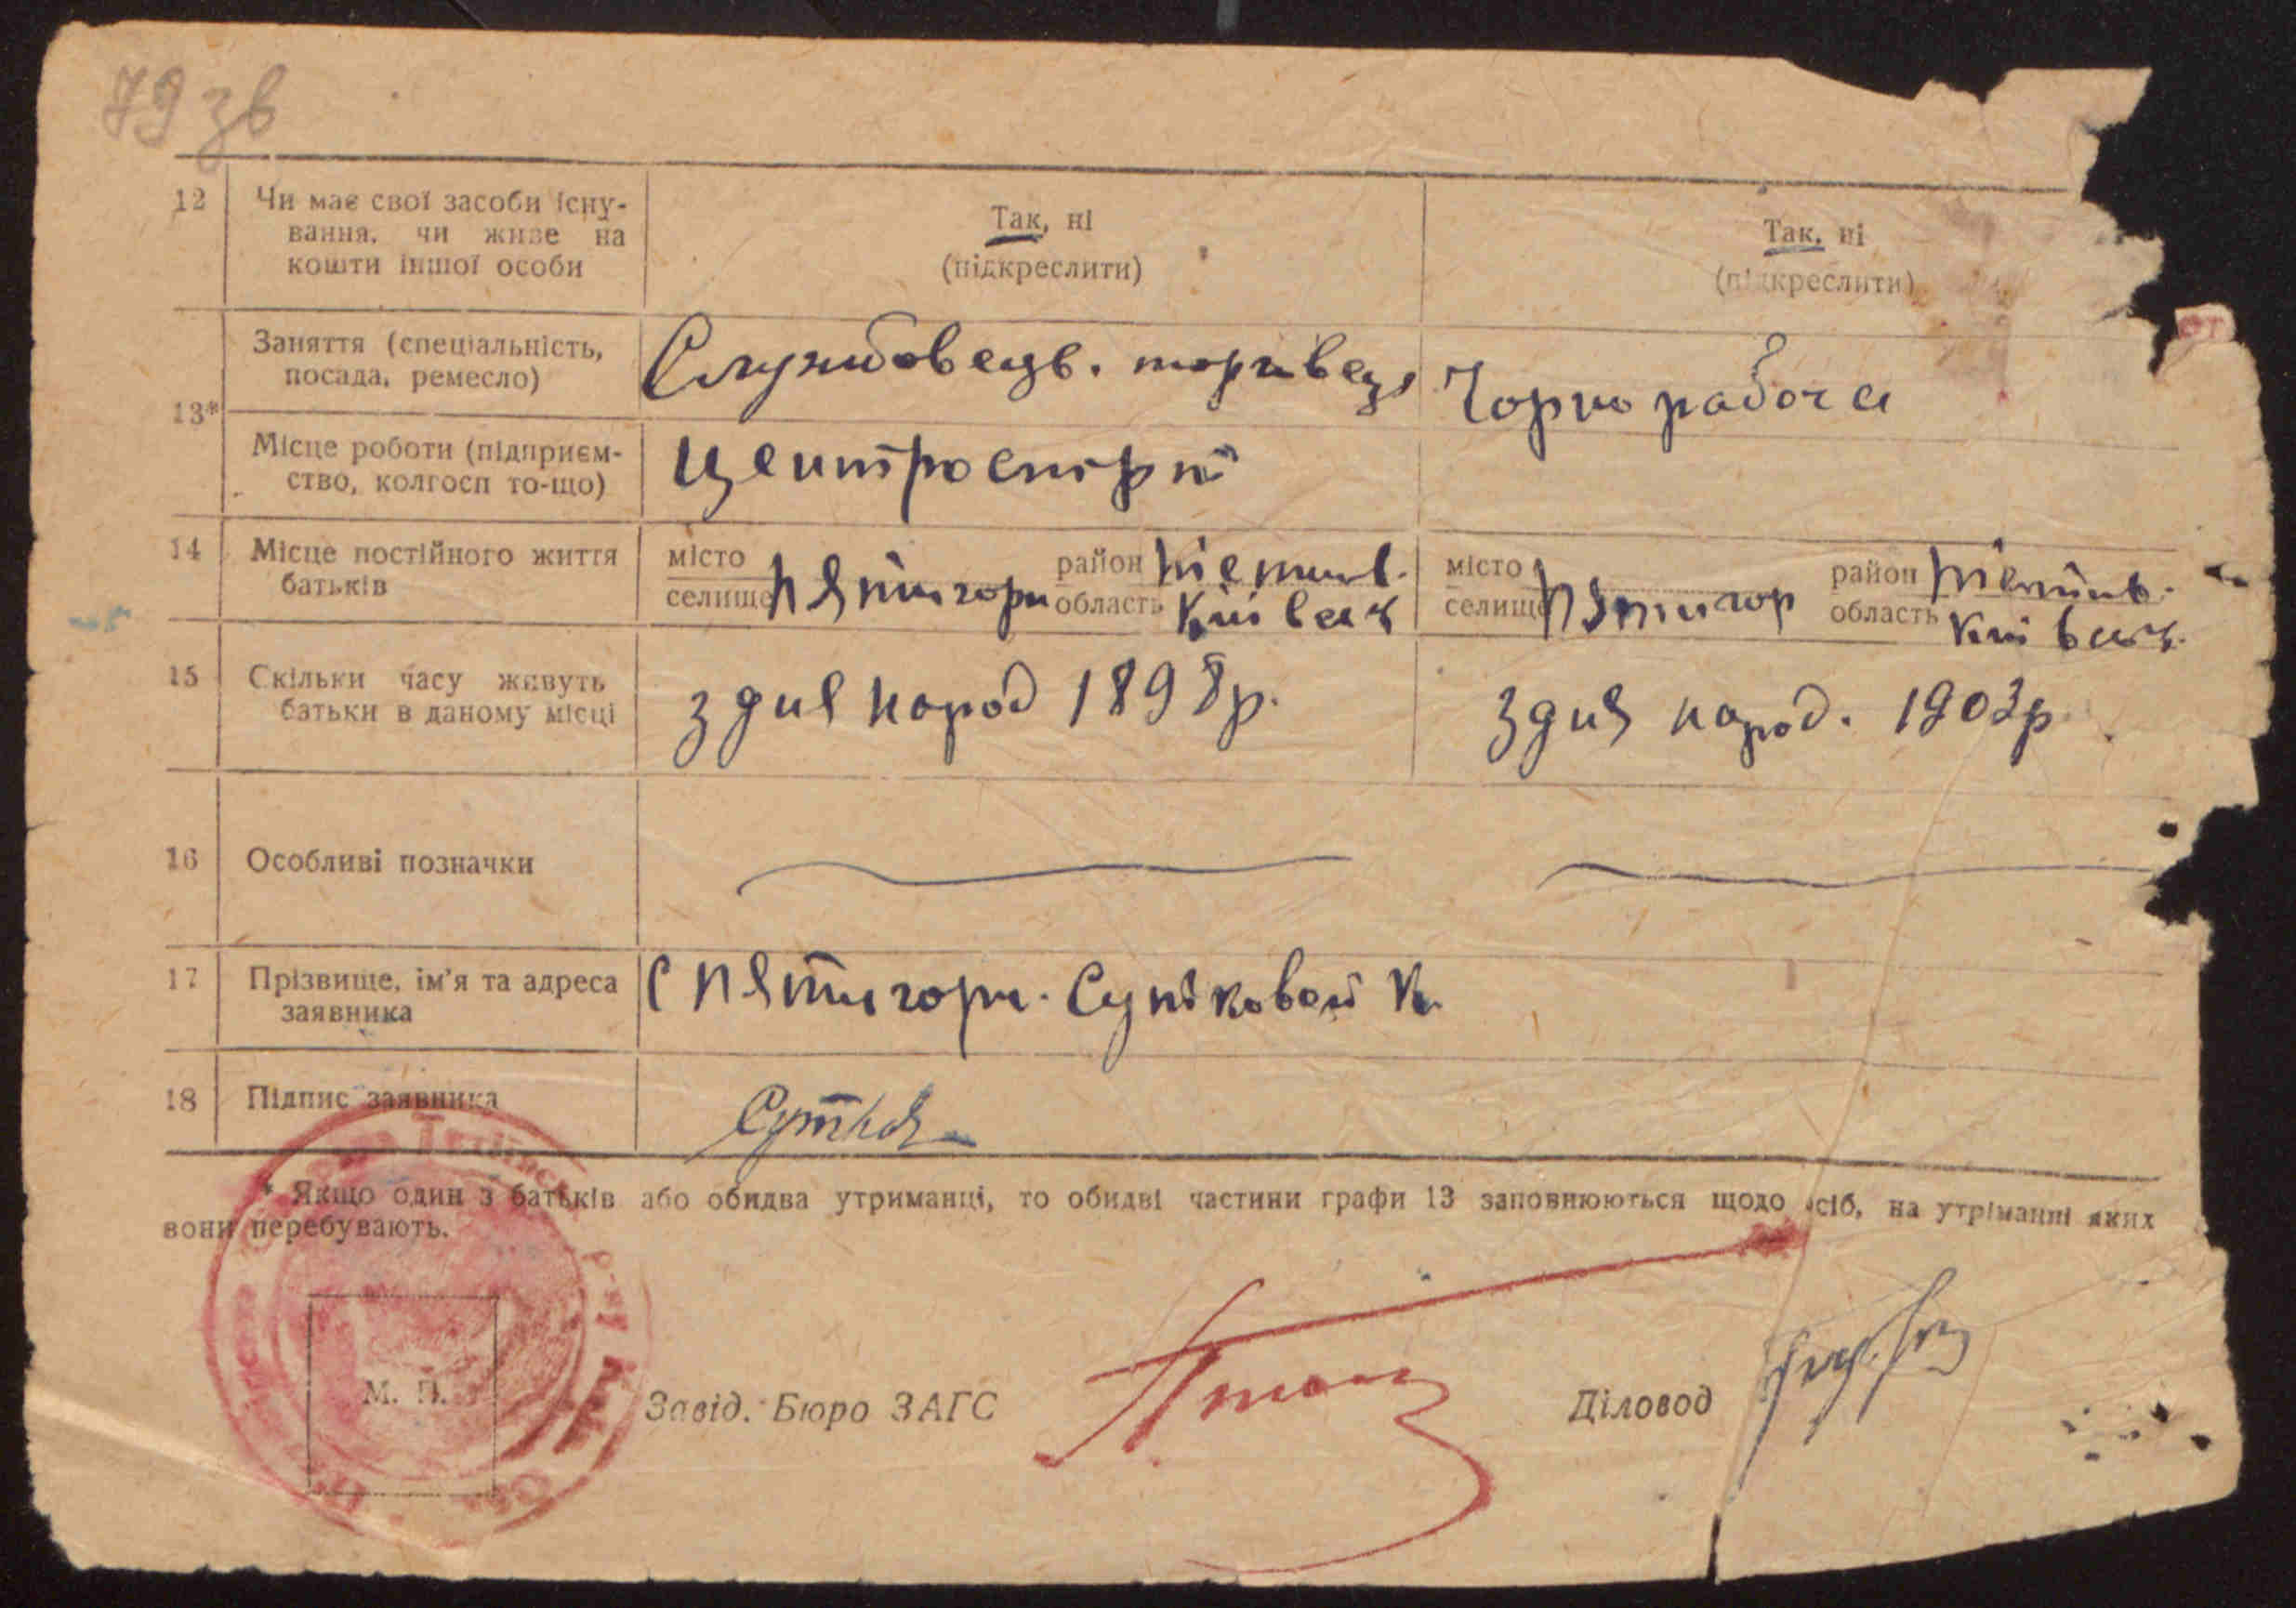 79 зв
12 Чи має свої засоби існу-
вання, чи живе на
кошти іншої особи
Так, ні
(підкреслити)
Так, ні
(підкреслити)
13*
Заняття (спеціальність,
посада, ремесло)
Службовець. торгівець
Чорнорабоча
Місце роботи (підприєм-
ство, колгосп то-що)
14 Місце постійного життя
батьків
місто
селище
Пятигори
район
область
Київськ
місто
селище
Пятигор
район
область
Київськ.
15 Скільки часу живуть
батьки в даному місці
З дня народ 1898р.
З дня народ. 1903р
16 Особливі позначки
17 Прізвище, ім'я та адреса
заявника
С Пятигори.
18 Підпис заявника
* Якщо один з батьків або обидва утриманці, то обидві частини графи 13 заповнюються щодо осіб, на утріманні яких
вони перебувають.
М. П.
Завід. Бюро ЗАГС
Діловод